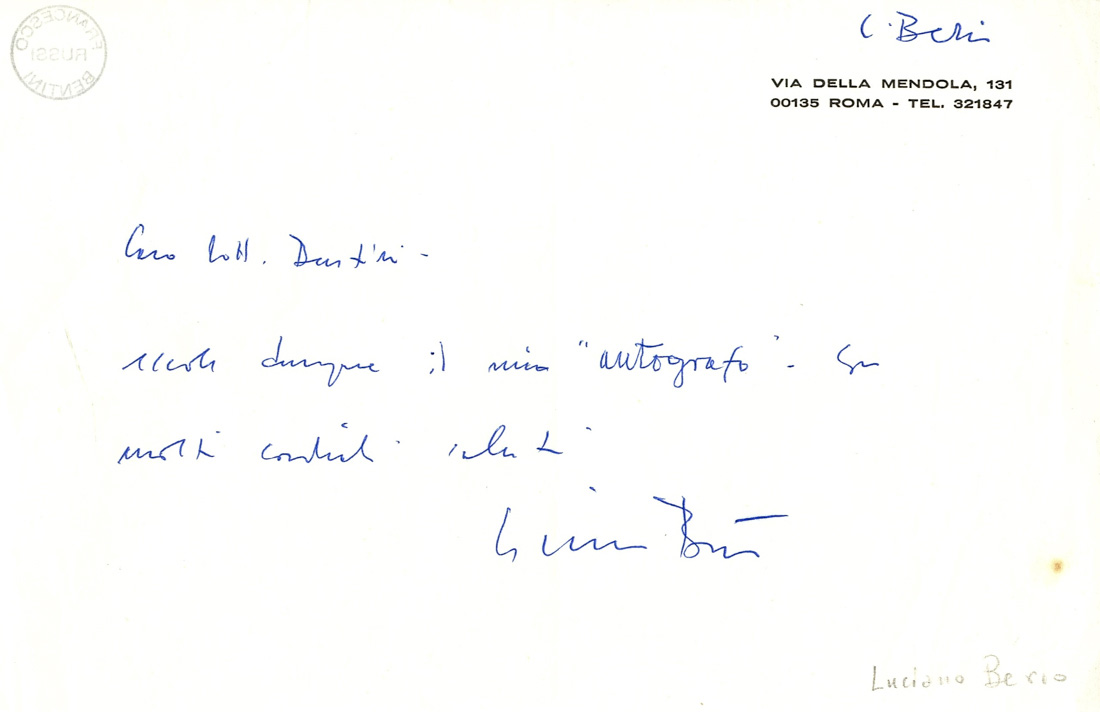 FRANCESCO
RUSSI
BENTINI
VIA DELLA MENDOLA, 131
00135 ROMA - TEL. 321847
Caro Dott.
eccole dunque il mio "autografo". Con
molti cordiali saluti
Luciano Berio
Luciano Berio